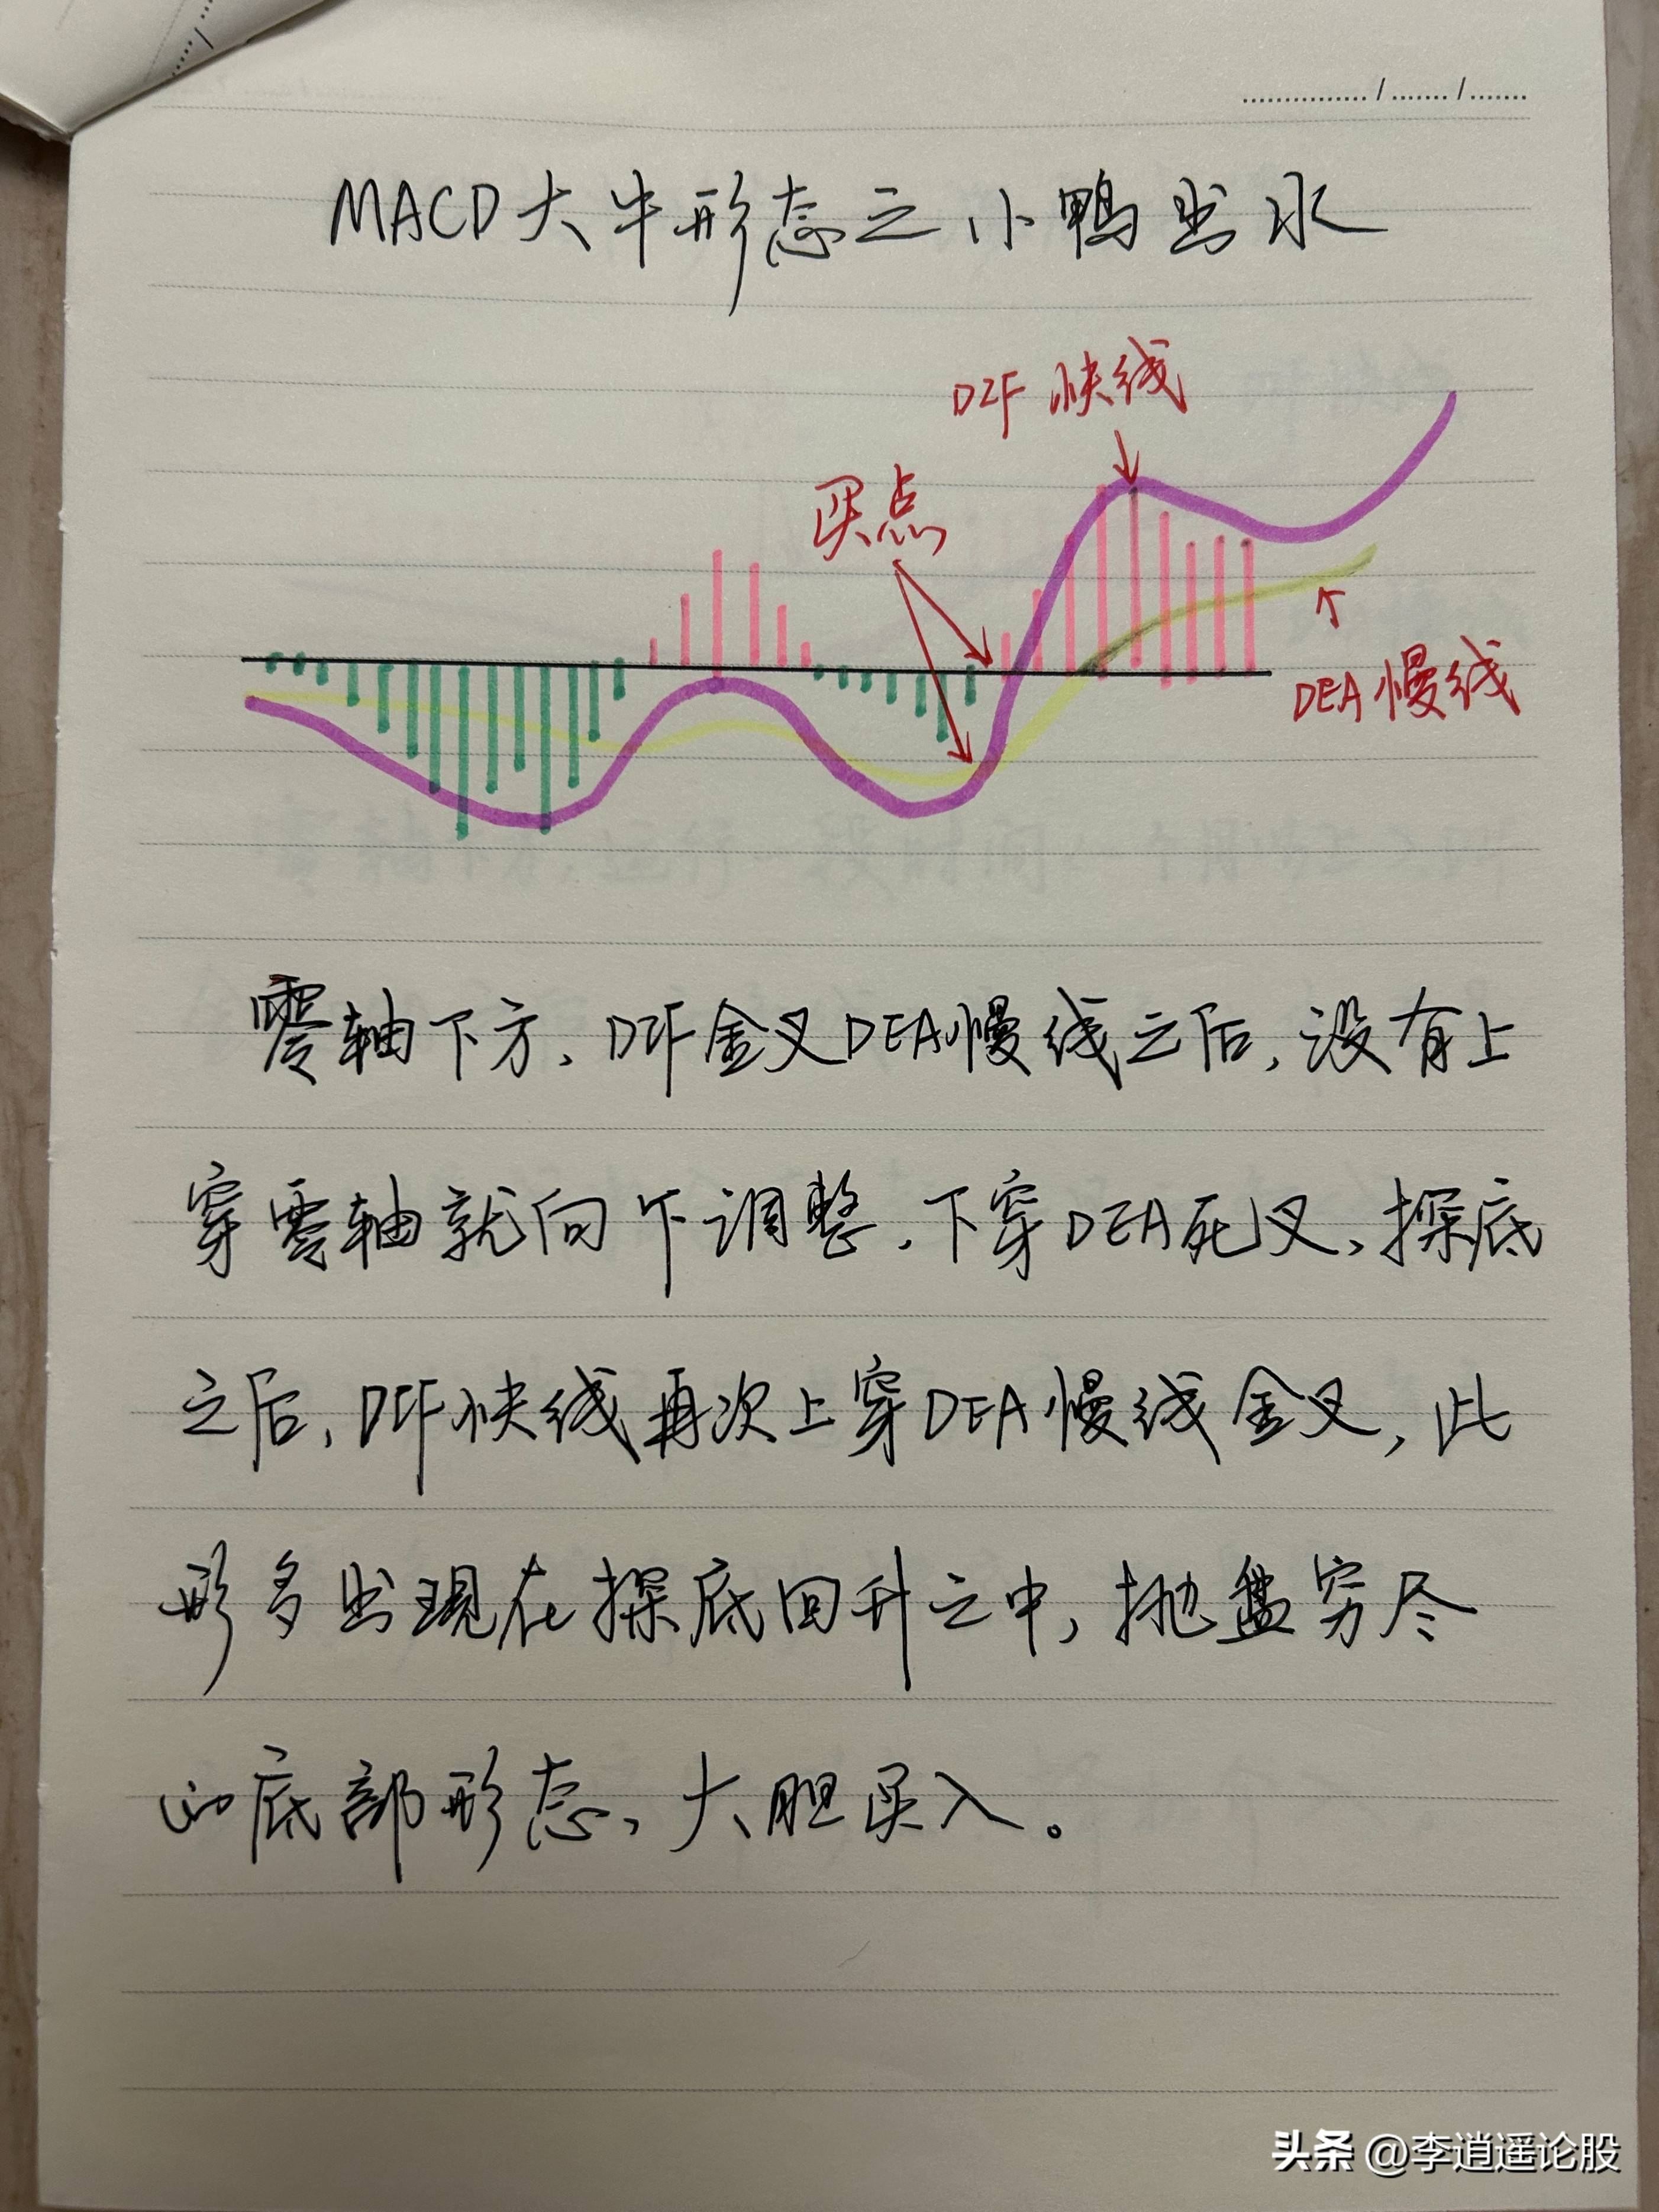 ............... / ....... / .......
MACD大牛形态之小鸭出水
DIF快线
买点
DEA慢线
零轴下方，DIF金叉DEA慢线之后，没有上
穿零轴就向下调整，下穿DEA死叉、探底
之后，DIF快线再次上穿DEA慢线金叉，此
形多出现在探底回升之中，抛盘穷尽
的底部形态，大胆买入。
头条 @李逍遥论股